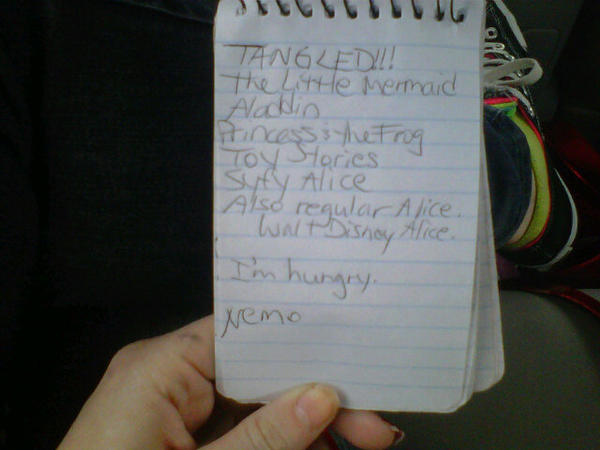 TANGLED!!!
The Little Mermaid
Aladdin
Princess & the Frog
Toy Stories
Syfy Alice
Also regular Alice.
Walt Disney Alice.
I'm hungry.
Nemo